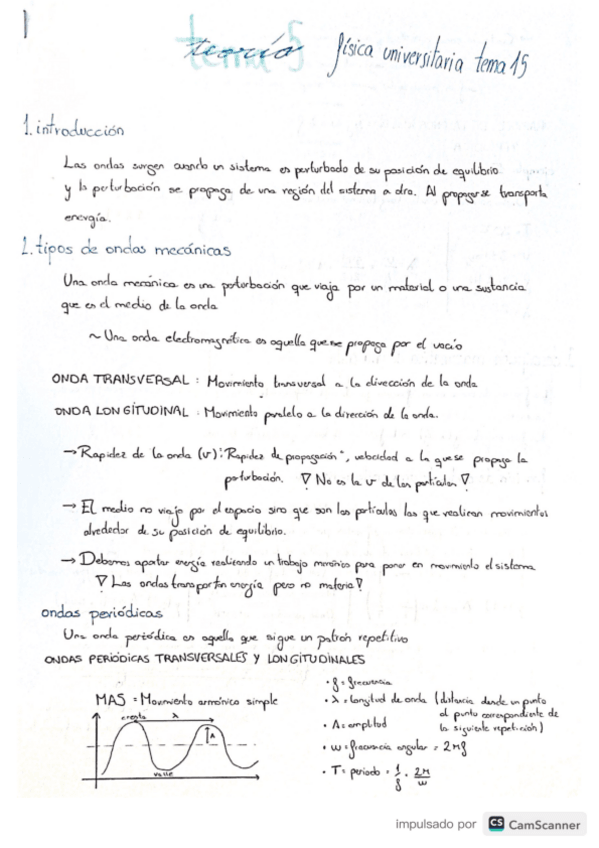 1
teoría tema 5 física universitaria tema 15
1. introducción
Las ondas surgen cuando un sistema es perturbado de su posición de equilibrio
y la perturbación se propaga de una región del sistema a otra. Al propagarse transporta
energía.
2. tipos de ondas mecánicas
Una onda mecánica es una perturbación que viaja por un material o una sustancia
que es el medio de la onda
~ Una onda electromagnética es aquella que se propaga por el vacío
ONDA TRANSVERSAL : Movimiento transversal a la dirección de la onda
ONDA LONGITUDINAL : Movimiento paralelo a la dirección de la onda.
→ Rapidez de la onda (v): "Rapidez de propagación", velocidad a la que se propaga la
perturbación. ∇ No es la v de las partículas ∇
→ El medio no viaja por el espacio sino que son las partículas las que realizan movimientos
alrededor de su posición de equilibrio.
→ Debemos aportar energía realizando un trabajo mecánico para poner en movimiento el sistema
∇ Las ondas transportan energía pero no materia ∇
ondas periódicas
Una onda periódica es aquella que sigue un patrón repetitivo
ONDAS PERIÓDICAS TRANSVERSALES Y LONGITUDINALES
MAS = Movimiento armónico simple
cresta λ
A
valle
• f = frecuencia
• λ = longitud de onda (distancia desde un punto
al punto correspondiente de
la siguiente repetición)
• A = amplitud
• w = frecuencia angular = 2πf
• T = periodo = 1/f = 2π/w
impulsado por CS CamScanner